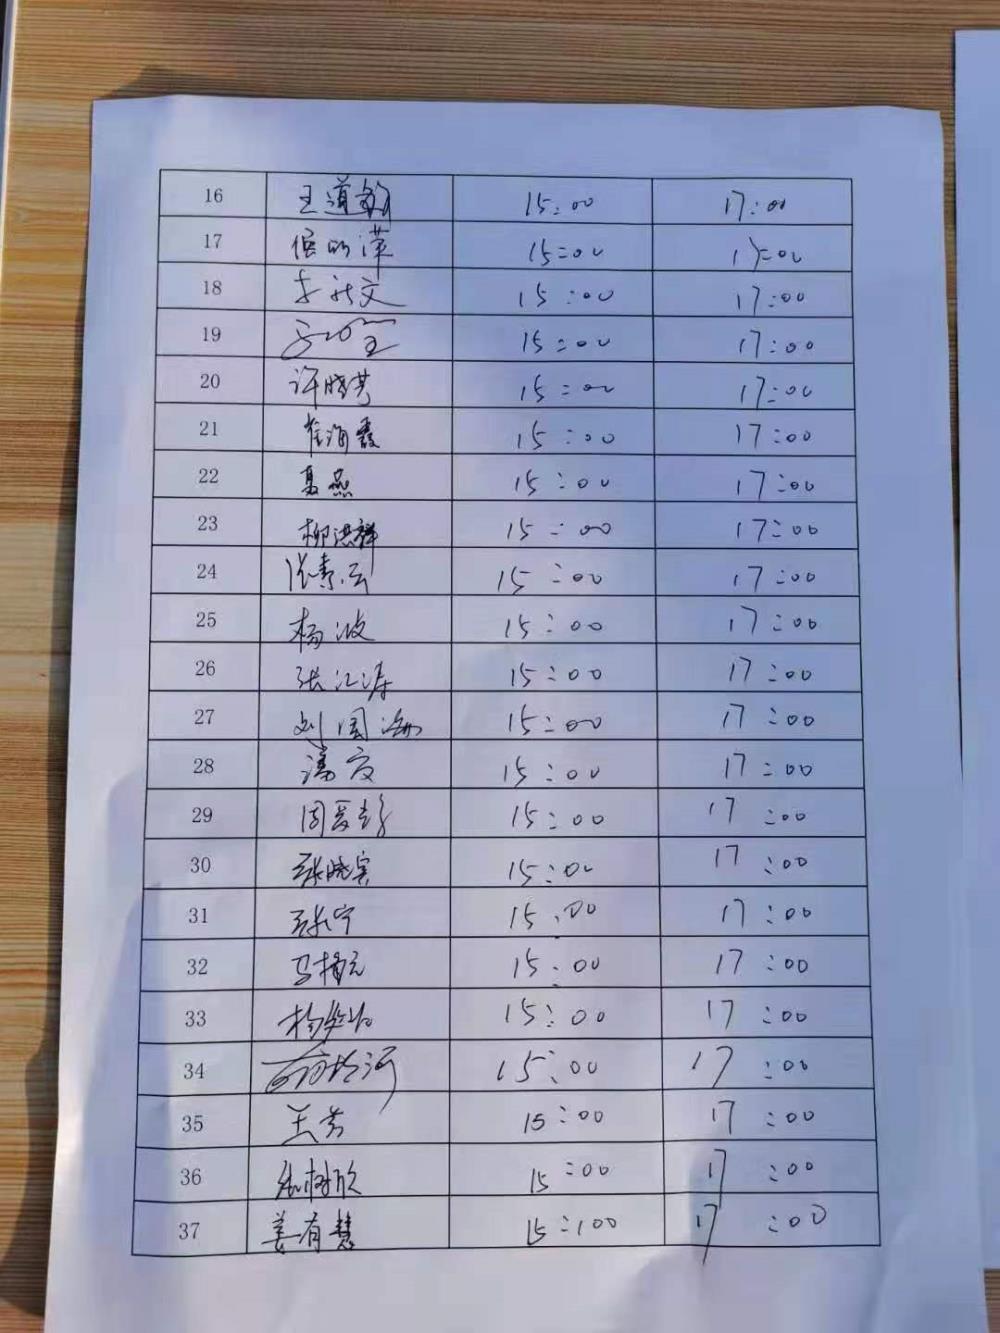 16 王道 15:00 17:00
17 15:00 17:00
18 文 15:00 17:00
19 15:00 17:00
20 许晓 15:00 17:00
21 崔海霞 15:00 17:00
22 燕 15:00 17:00
23 柳洪祥 15:00 17:00
24 15:00 17:00
25 杨波 15:00 17:00
26 张江涛 15:00 17:00
27 刘国 15:00 17:00
28 15:00 17:00
29 周爱 15:00 17:00
30 张晓 15:00 17:00
31 张宁 15:00 17:00
32 马 15:00 17:00
33 杨 15:00 17:00
34 河 15:00 17:00
35 王芳 15:00 17:00
36 15:00 17:00
37 姜有慧 15:100 17:00